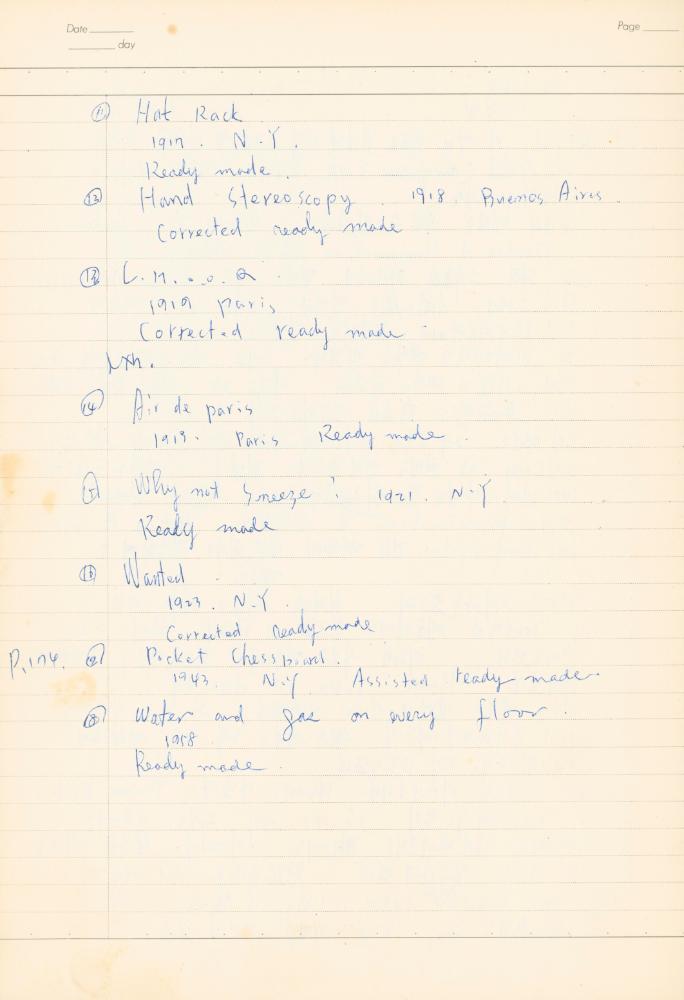 Date
day
Page
⑪ Hat Rack
1917. N.Y.
Ready made.
⑫ Hand Stereoscopy. 1918. Buenos Aires.
Corrected ready made
⑬ L.H.o.o.Q
1919 paris,
Corrected ready made
⑭ Air de paris
1919. Paris Ready made.
Why not Sneeze? 1921. N.Y
Ready made
⑯ Wanted
1923. N.Y.
Corrected ready made
P.174. Pocket Chessboard.
1943. N.Y Assisted ready made.
⑱ Water and gas on every floor.
1958
Ready made.